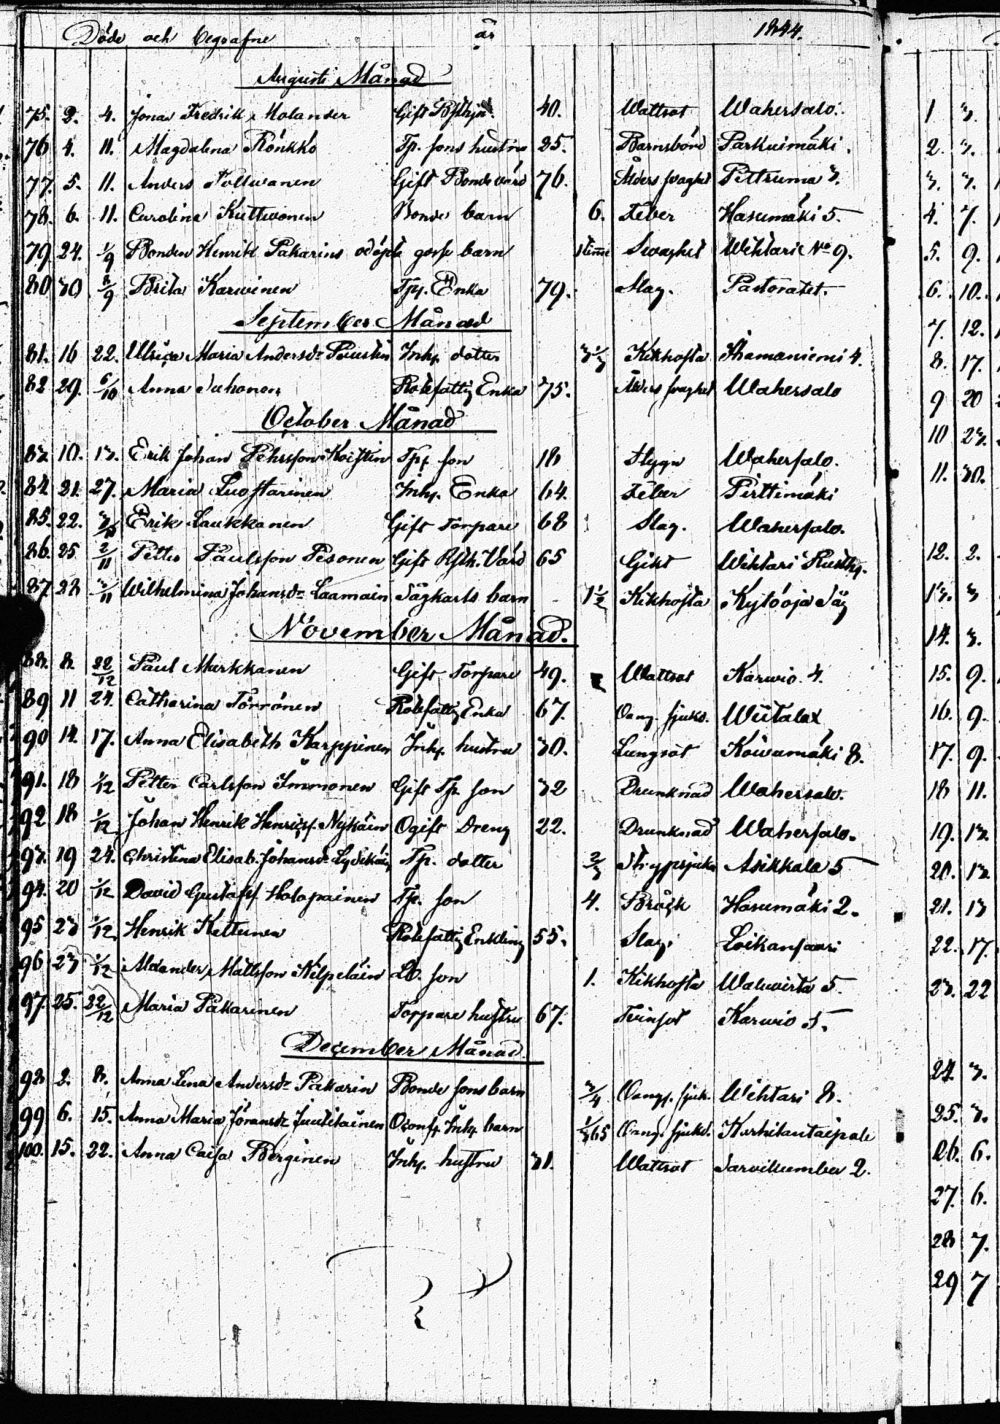 Döde och begrafne år 1844.
Augusti Månad
75. 2. 4. Jonas Fredrik Molander Gift 40. Wattsot Wahersalo.
76 4. 11. Magdalena Rönkkö Tp. sons hustru 25. Barnsbörd Parkuimäki.
77. 5. 11. Anders Tolwanen Gift Bonde värd 76. Ålders svaghet Pettruma 3.
78. 6. 11. Carolina Kuttwonen Bonde barn 6. Feber Hasumäki 5.
79. 24. 1/9 Bonden Henrik Pakarins odöpte goss barn timme Swaghet Wihtari No 9.
80 30 8/9 Brita Karwinen Tp. Enka 79. Slag. Pastoratet.
September Månad
81. 16 22. Ulrica Maria Andersdr Puustin Inh. dotter Kikhosta Ihamaniemi 4.
82 29. 6/10 Anna Juhonen Rotefattig Enka 75. Ålders svaghet Wahersalo
October Månad
83. 10. 13. Erik Johan Pehrsson Koistin Tp. son 18 Flygn Wahersalo.
84 21. 27. Maria Luostarinen Inh. Enka 64. Feber Pirttimäki
85. 22. 3/11 Erik Laukkanen Gift Torpare 68 Slag. Wahersalo.
86. 25 2/11 Petter Paulsson Pesonen Gift Värd 65 Gikt Wihtari Rusth.
87. 28 3/11 Wilhelmina Johansdr Laamain Sågkarls barn 1 1/2 Kikhosta Kytöoja Såg
November Månad.
88. 8. 22/12 Paul Markkanen Gift Torpare 49. Wattsot Karwio 4.
89 11 24. Catharina Törrönen Rotefattig Enka 67. Oang. sjukd. Wiitalax
90 14. 17. Anna Elisabeth Karppinen Inh. hustru 30. Lungsot Koiwumäki 8.
91. 18 1/12 Petter Carlsson Immonen Gift Tp. son 32 Drunknad Wahersalo.
92 18 1/12 Johan Henrik Henricss. Nykäin Ogift Dreng 22. Drunknad Wahersalo.
93. 19 24. Christina Elisab. Johansdr Tp. dotter 2/3 Strypsjuka Asikkala 5
94. 20 1/12 David Gustafss Holopainen Tp. son 4. Bråck Hasumäki 2.
95 23 1/12 Henrik Kettunen Rotefattig Enkling 55. Slag. Loikansaari
96 23 1/12 Alexander Mattsson Kilpeläin son 1. Kikhosta Waluvirta 5.
97. 25. 22/12 Maria Pakarinen Torpare hustru 67. Twinsot Karwio 5.
December Månad
98 2. 8. Anna Lena Andersdr Pakarin Bonde sons barn 3/4 Oangf. sjuk. Wihtari 8.
99 6. 15. Anna Maria Göransdr Juutilainen Inh. barn Oang. sjukd. Kurhilantaipale
100. 15. 22. Anna Caisa Berginen Inh. hustru 31. Wattsot Sarvikumbu 2.
1 3.
2. 3.
3. 3.
4. 7.
5. 9.
6. 10.
7. 12.
8. 17.
9 20
10 23.
11. 30.
12. 2.
13. 3
14. 3.
15. 9.
16. 9.
17. 9.
18 11.
19. 13.
20. 13.
21. 13
22. 17.
23. 22
24. 3.
25. 3.
26. 6.
27. 6.
28 7.
29 7